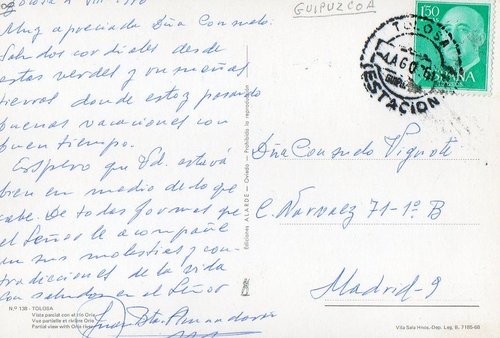 Muy apreciada Dña Consuelo:
Saludos cordiales desde
estas verdes y risueñas
tierras donde estoy pasando
buenas vacaciones con
buen tiempo.
Espero que Vd. estará
bien en medio de lo que
cabe. De todas formas que
el Señor le acompañe
en sus molestias y con-
tradicciones de la vida
con saludos en el Señor
Nº 138 - TOLOSA
Vista parcial con el río Oria
Vue partielle et rivière Oria
Partial view with Oria river
Ediciones ALARDE - Oviedo - Prohibida la reproducción
GUIPUZCOA
1,50
ESPAÑA
TOLOSA
AGO
(ESTACION)
Dña Consuelo
C. Narvaez 71-1º B
Madrid-9
Vila Sala Hnos.-Dep. Leg. B. 7185-68